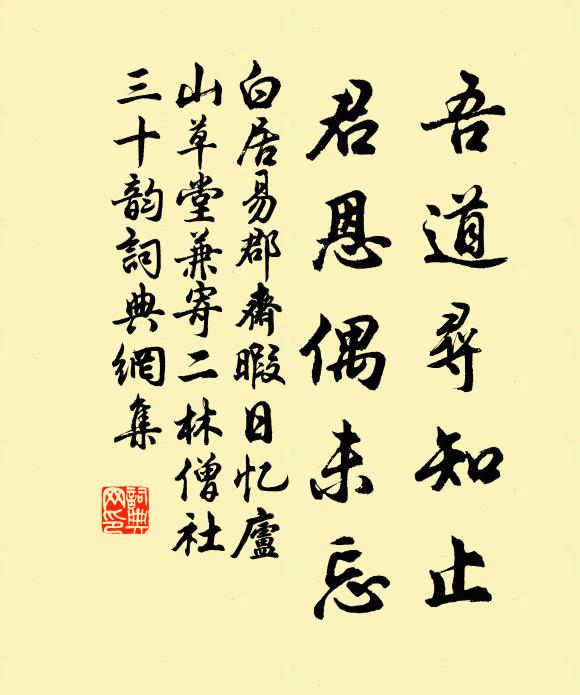 吾道寻知止
君恩偶未忘
白居易郡斋暇日忆廬
山草堂兼寄二林僧社
三十韵詞典網集
詞典网印